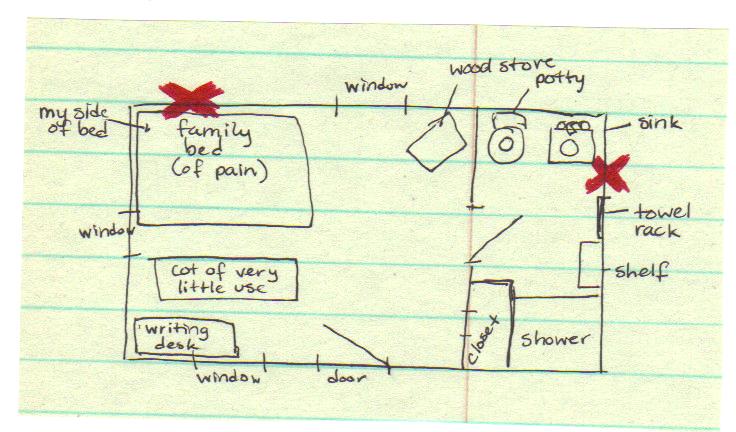 window
wood stove
potty
my side
of bed
family
bed
(of pain)
sink
window
towel
rack
cot of very
little use
shelf
writing
desk
closet
shower
window
door